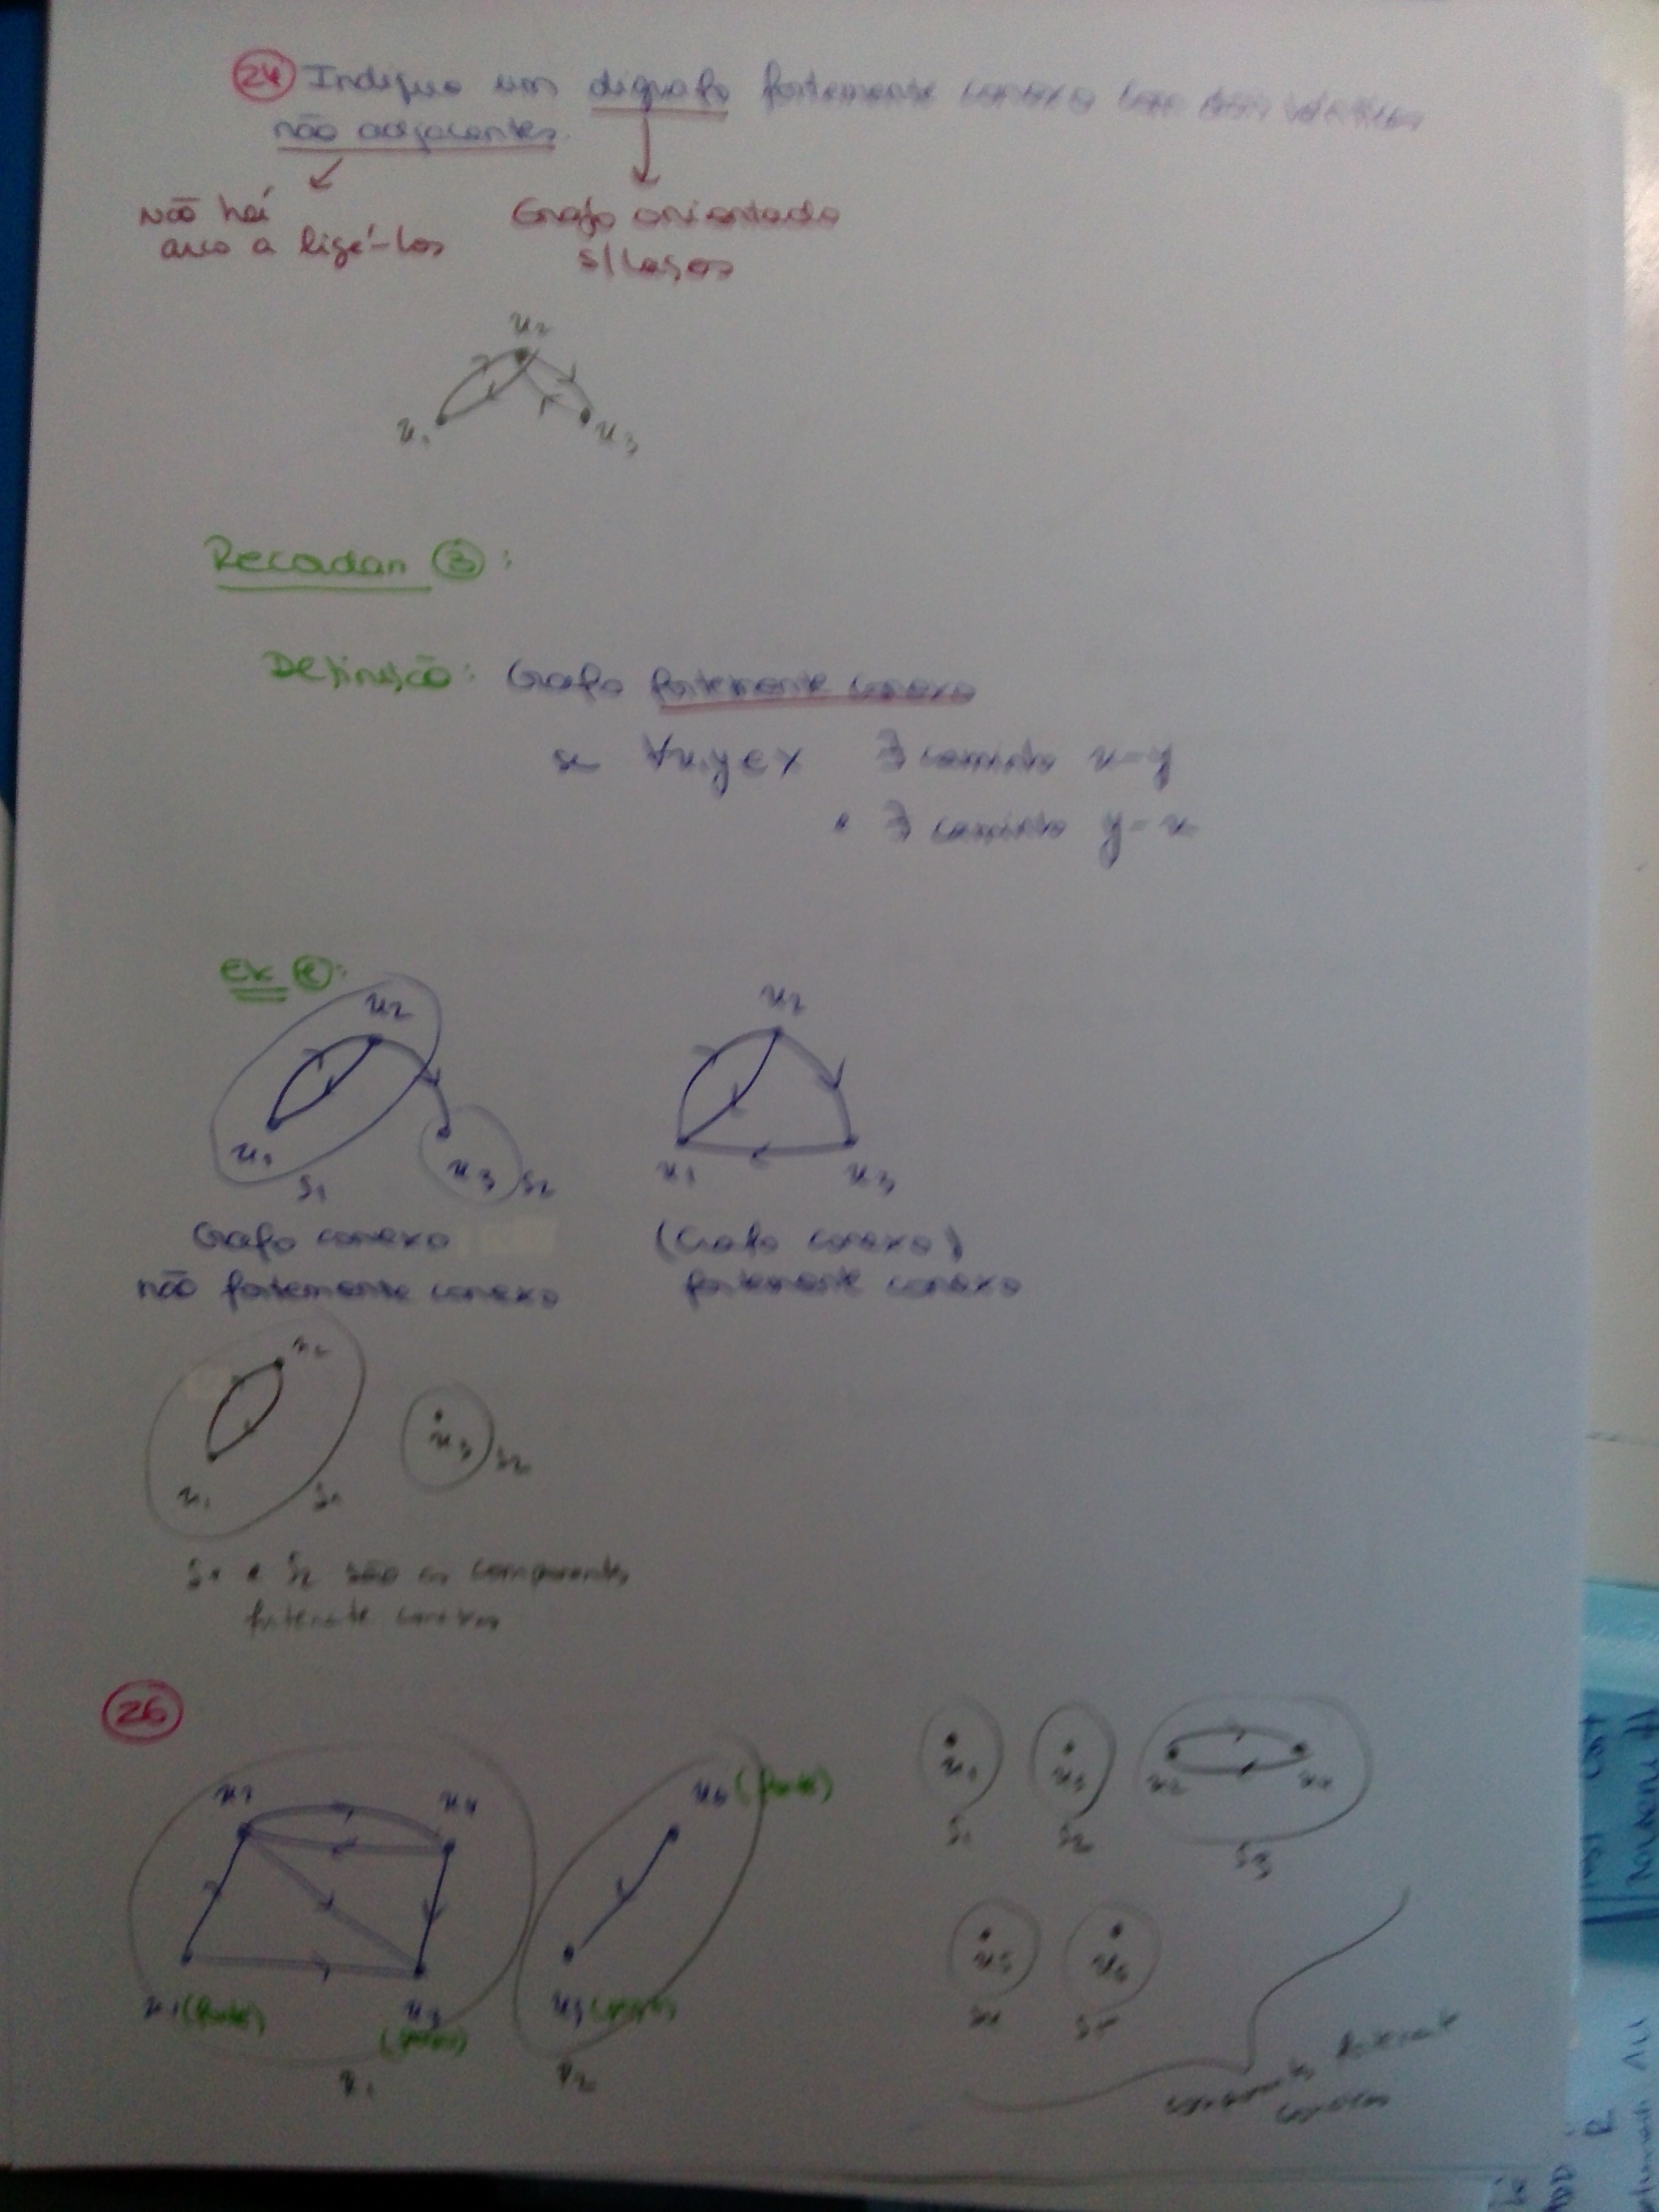 24 Indique um digrafo fortemente conexo com dois vértices
não adjacentes.
não há
arco a ligá-los
Grafo orientado
s/ laços
x2
x1
x3
Recordar 3:
Definição: Grafo fortemente conexo
se ∀x,y ∈ X ∃ caminho x-y
e ∃ caminho y-x
ex:
x2
x2
x1
x3
S1
S2
x1
x3
Grafo conexo
(Grafo conexo)
não fortemente conexo
fortemente conexo
x2
x3
S2
x1
S1
S1 e S2 são as componentes
fortemente conexas
26
x2
x4
x6 (fonte)
x1 (fonte)
x3
x5
x1
x3
x2
x4
S1
S2
S3
x5
x6
S4
S5
componentes fortemente
conexas